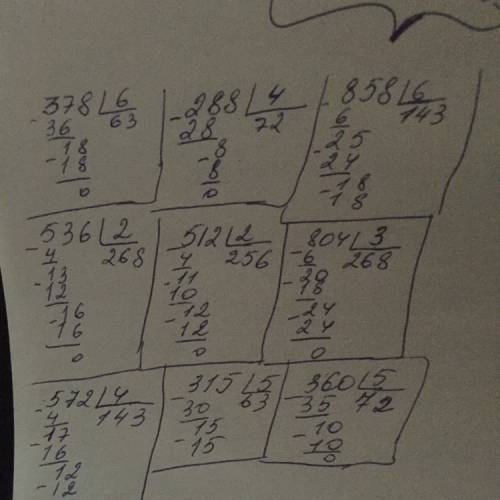 -378 | 6
36 63
-18
18
0
-288 | 4
28 72
-8
8
0
-858 | 6
6 143
-25
24
-18
18
-536 | 2
4 268
-13
12
-16
16
0
-512 | 2
4 256
-11
10
-12
12
0
-804 | 3
6 268
-20
18
-24
24
0
-572 | 4
4 143
-17
16
-12
12
-315 | 5
30 63
-15
15
-360 | 5
35 72
-10
10
0